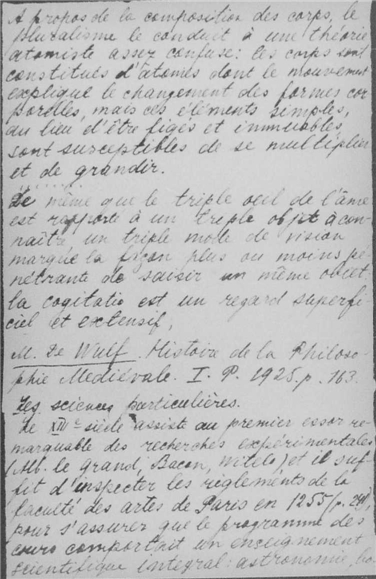 A propos de la composition des corps, le
pluralisme le conduit à une théorie
atomiste assez confuse: les corps sont
constitués d'atomes dont le mouvement
explique le changement des formes cor
porelles, mais ces éléments simples,
au lieu d'être figés et immuables
sont susceptibles de se multiplier
et de grandir.
De même que le triple oeil de l'âme
est rapporté à un triple objet à con-
naître, un triple mode de vision
marque la façon plus ou moins pé
nétrante de saisir un même objet
la cogitatio est un regard superfi
ciel et extensif,
M. De Wulf. Histoire de la Philoso-
phie Médiévale. I. P. 1925, p. 163.
Les sciences particulières.
Le XIIIe siècle assiste au premier essor re
marquable des recherches expérimentales
(Alb. le grand, Bacon, Witelo) et il suf-
fit d'inspecter les règlements de la
faculté des artes de Paris en 1255
pour s'assurer que le programme des
cours comportait un enseignement
scientifique intégral: astronomie,